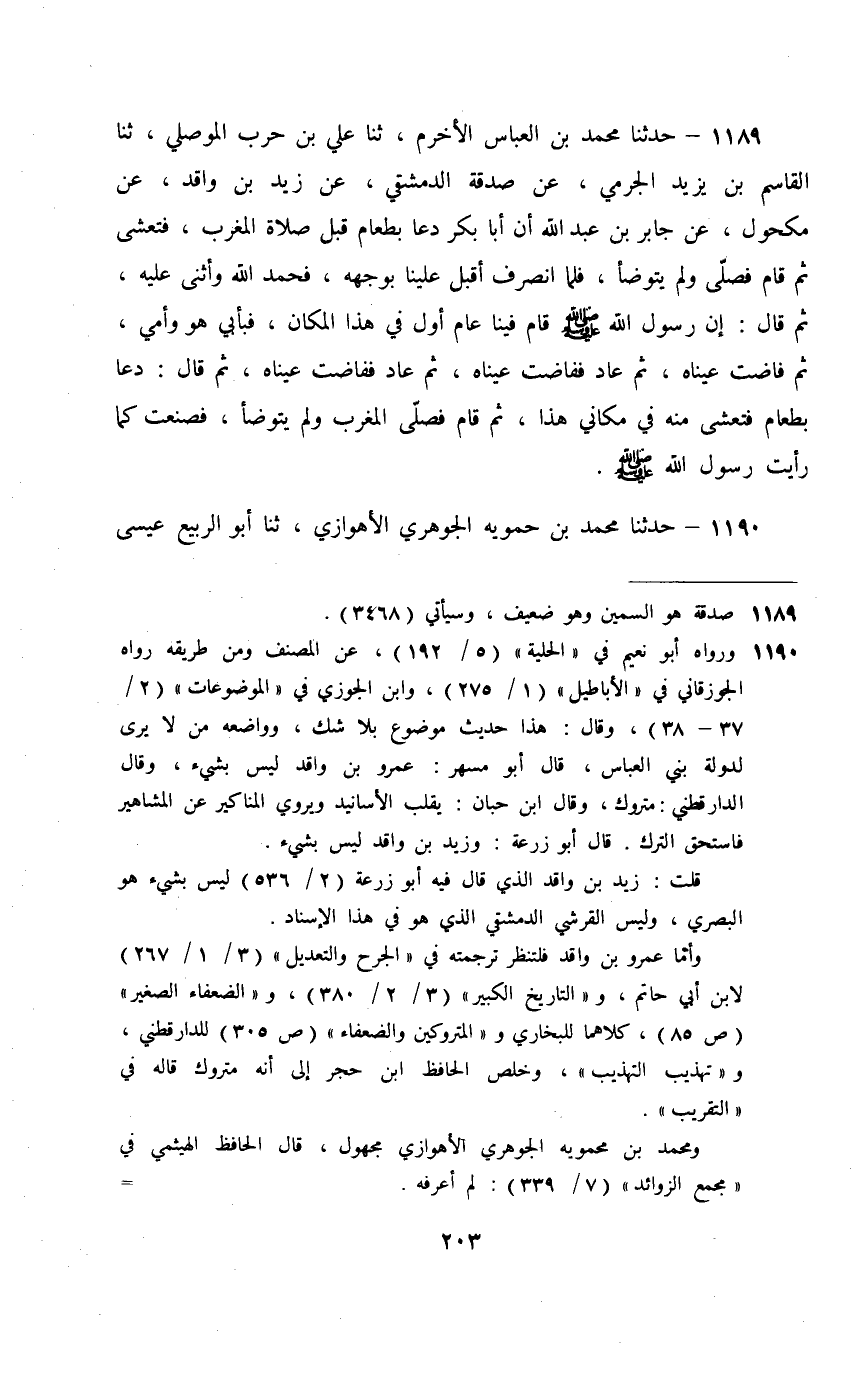 ١١٨٩ – حدثنا محمد بن العباس الأخرم ، ثنا علي بن حرب الموصلي ، ثنا
القاسم بن يزيد الجرمي ، عن صدقة الدمشقي ، عن زيد بن واقد ، عن
مكحول ، عن جابر بن عبد الله أن أبا بكر دعا بطعام قبل صلاة المغرب ، فتعشى
ثم قام فصلّى ولم يتوضأ ، فلما انصرف أقبل علينا بوجهه ، فحمد الله وأثنى عليه ،
ثم قال : إن رسول الله ﷺ قام فينا عام أول في هذا المكان ، فبأبي هو وأمي ،
ثم فاضت عيناه ، ثم عاد ففاضت عيناه ، ثم عاد ففاضت عيناه ، ثم قال : دعا
بطعام فتعشى منه في مكاني هذا ، ثم قام فصلّى المغرب ولم يتوضأ ، فصنعت كما
رأيت رسول الله ﷺ .
١١٩٠ – حدثنا محمد بن حمويه الجوهري الأهوازي ، ثنا أبو الربيع عيسى
١١٨٩ صدقة هو السمين وهو ضعيف ، وسيأتي (٣٤٦٨) .
١١٩٠ ورواه أبو نعيم في «الحلية» (٥/ ١٩٢) ، عن المصنف ومن طريقه رواه
الجوزقاني في «الأباطيل» (١/ ٢٧٥) ، وابن الجوزي في «الموضوعات» (٢/
٣٧ – ٣٨) ، وقال : هذا حديث موضوع بلا شك ، وواضعه من لا يرى
لدولة بني العباس ، قال أبو مسهر : عمرو بن واقد ليس بشيء ، وقال
الدارقطني : متروك ، وقال ابن حبان : يقلب الأسانيد ويروي المناكير عن المشاهير
فاستحق الترك . قال أبو زرعة : وزيد بن واقد ليس بشيء .
قلت : زيد بن واقد الذي قال فيه أبو زرعة (٢/ ٥٣٦) ليس بشيء هو
البصري ، وليس القرشي الدمشقي الذي هو في هذا الإسناد .
وأمّا عمرو بن واقد فلتنظر ترجمته في «الجرح والتعديل» (٣/ ١/ ٢٦٧)
لابن أبي حاتم ، و «التاريخ الكبير» (٣/ ٢/ ٣٨٠) ، و «الضعفاء الصغير»
(ص ٨٥) ، كلاهما للبخاري و «المتروكين والضعفاء» (ص ٣٠٥) للدارقطني ،
و «تهذيب التهذيب» ، وخلص الحافظ ابن حجر إلى أنه متروك قاله في
«التقريب» .
ومحمد بن محمويه الجوهري الأهوازي مجهول ، قال الحافظ الهيثمي في
«مجمع الزوائد» (٧/ ٣٣٩) : لم أعرفه . =
٢٠٣